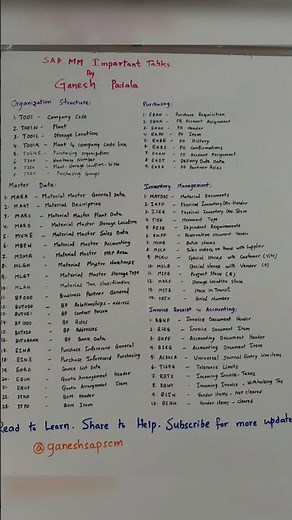 SAP MM Important Tables
By
Ganesh Padala
Organization Structure:
1. T001 - Company Code
2. T001W - Plant
3. T001L - Storage Location
4. T001K - Plant & Company Code link
5. T024E - Purchasing Organizations
- Plant - Storage Location
- Purchasing Groups
Master Data:
1. MARA - Material Master General Data
2. MAKT - Material Description
3. MARC - Material Master Plant Data
4. MARD - Material Master Storage Location
5. MVKE - Material Master Sales Data
6. MBEW - Material Master Accounting
7. MDMA - Material Master MRP Area
8. MLGN - Material Master Warehouse
9. MLGT - Material Master Storage Type
10. MLAN - Material Tax Classification
11. BP000 - Business Partner General
12. BUT020 - BP Relationships - address
13. BUT051 - BP Contact Person
14. - BP Roles
15. - BP Addresses
16. BUT0BANK - BP Bank Data
17. EINA - Purchase Inforecord General
18. EINE - Purchase Inforecord Purchasing
19. EORD - Source List Data
20. EQUK - Quota Arrangement Header
21. EQUP - Quota Arrangement Item
22. STKO - BOM Header
23. STPO - BOM Item
Purchasing:
1. EBAN - Purchase Requisition
2. EBKN - PR Account Assignment
3. EKKO - PO Header
4. EKPO - PO Item
5. EKBE - PO History
6. EKES - PO Confirmations
7. EKKN - PO Account Assignment
8. EKET - Delivery Date Data
9. EKPA - PO Partner Roles
Inventory Management:
1. MATDOC - Material Documents
2. IKPF - Physical Inventory Doc - Header
3. ISEG - Physical Inventory Doc - Item
4. - Movement Type
5. RESB - Dependent Requirements
6. RKPF - Reservation Document Header
7. MCHB - Batch stocks
8. - Sales orders on Hand with Supplier
9. MSKU - Special stocks with Customer
10. MSLB - Special stocks with Vendor
11. MSPR - Project Stock
12. MARD - Storage Location Stock
13. MSTB - Stock in Transit
14. OBJK - Serial Number
Invoice Receipt & Accounting:
1. RBKP - Invoice Document Header
2. RSEG - Invoice Document Item
3. BKPF - Accounting Document Header
4. BSEG - Accounting Document Item
5. ACDOCA - Universal Journal Entry Line items
6. T169G - Tolerance Limits
7. RBTX - Incoming Invoice. Taxes
8. RBWT - Incoming Invoice - Withholding Tax
9. BSIK - Vendor items - Not cleared
10. BSAK - Vendor items - cleared
Read to Learn. Share to Help. Subscribe for more update
@ganeshsapscm